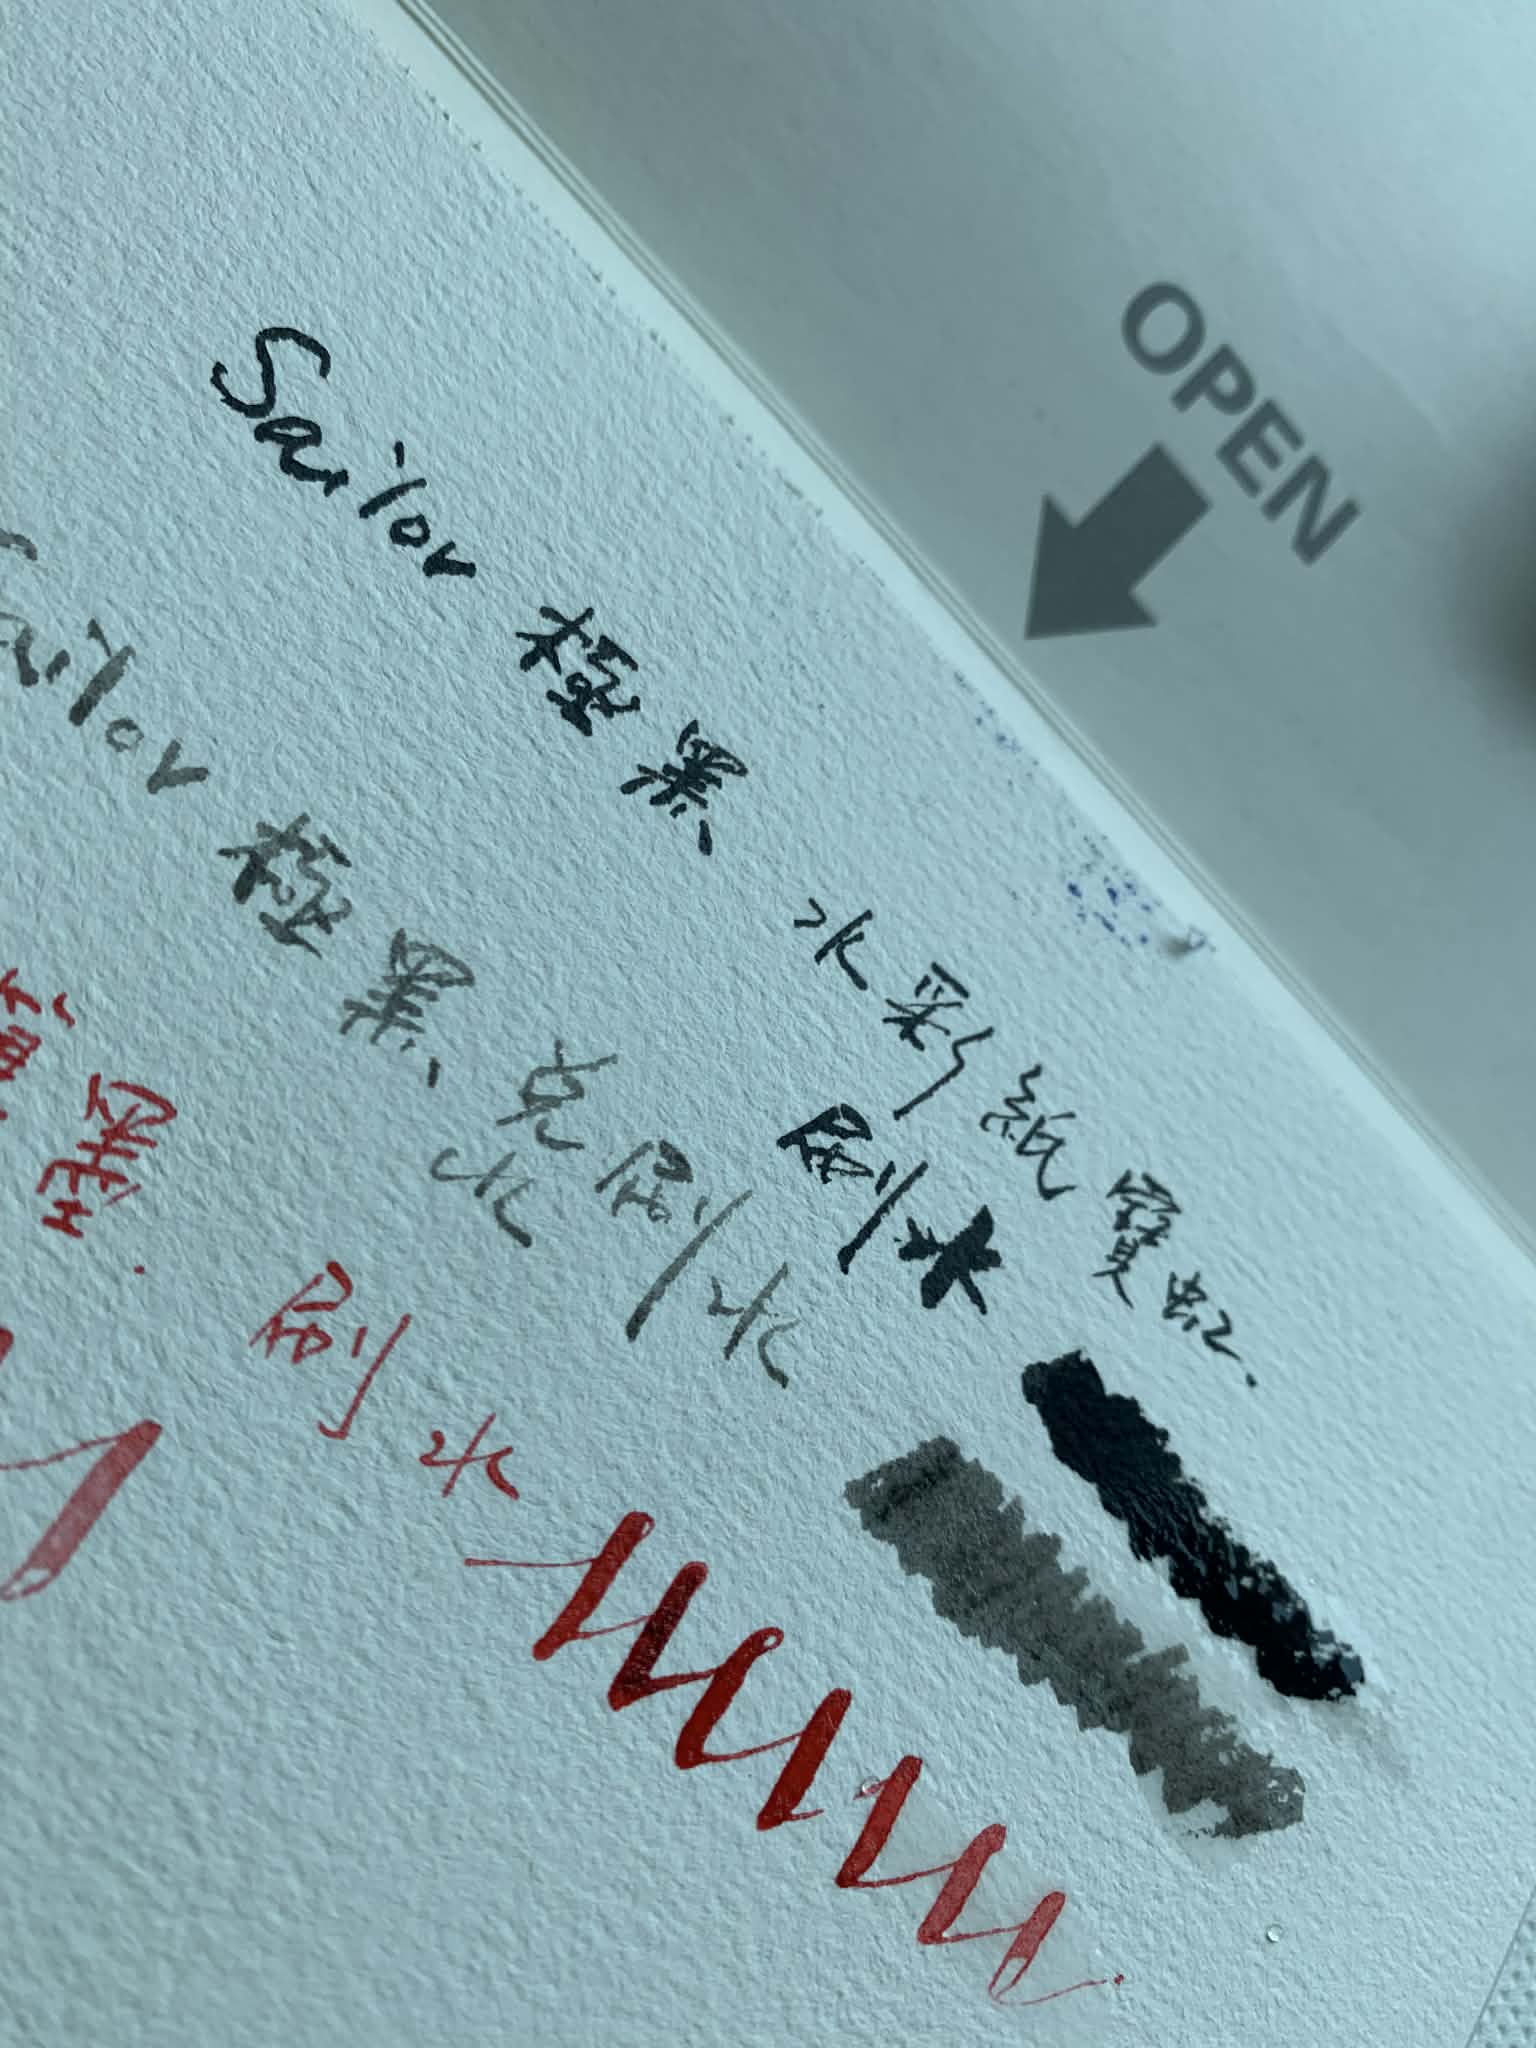 OPEN
Sailor 極黑 水彩紙 寶虹
刷水
Sailor 極黑 克刷水
水
墨 刷水